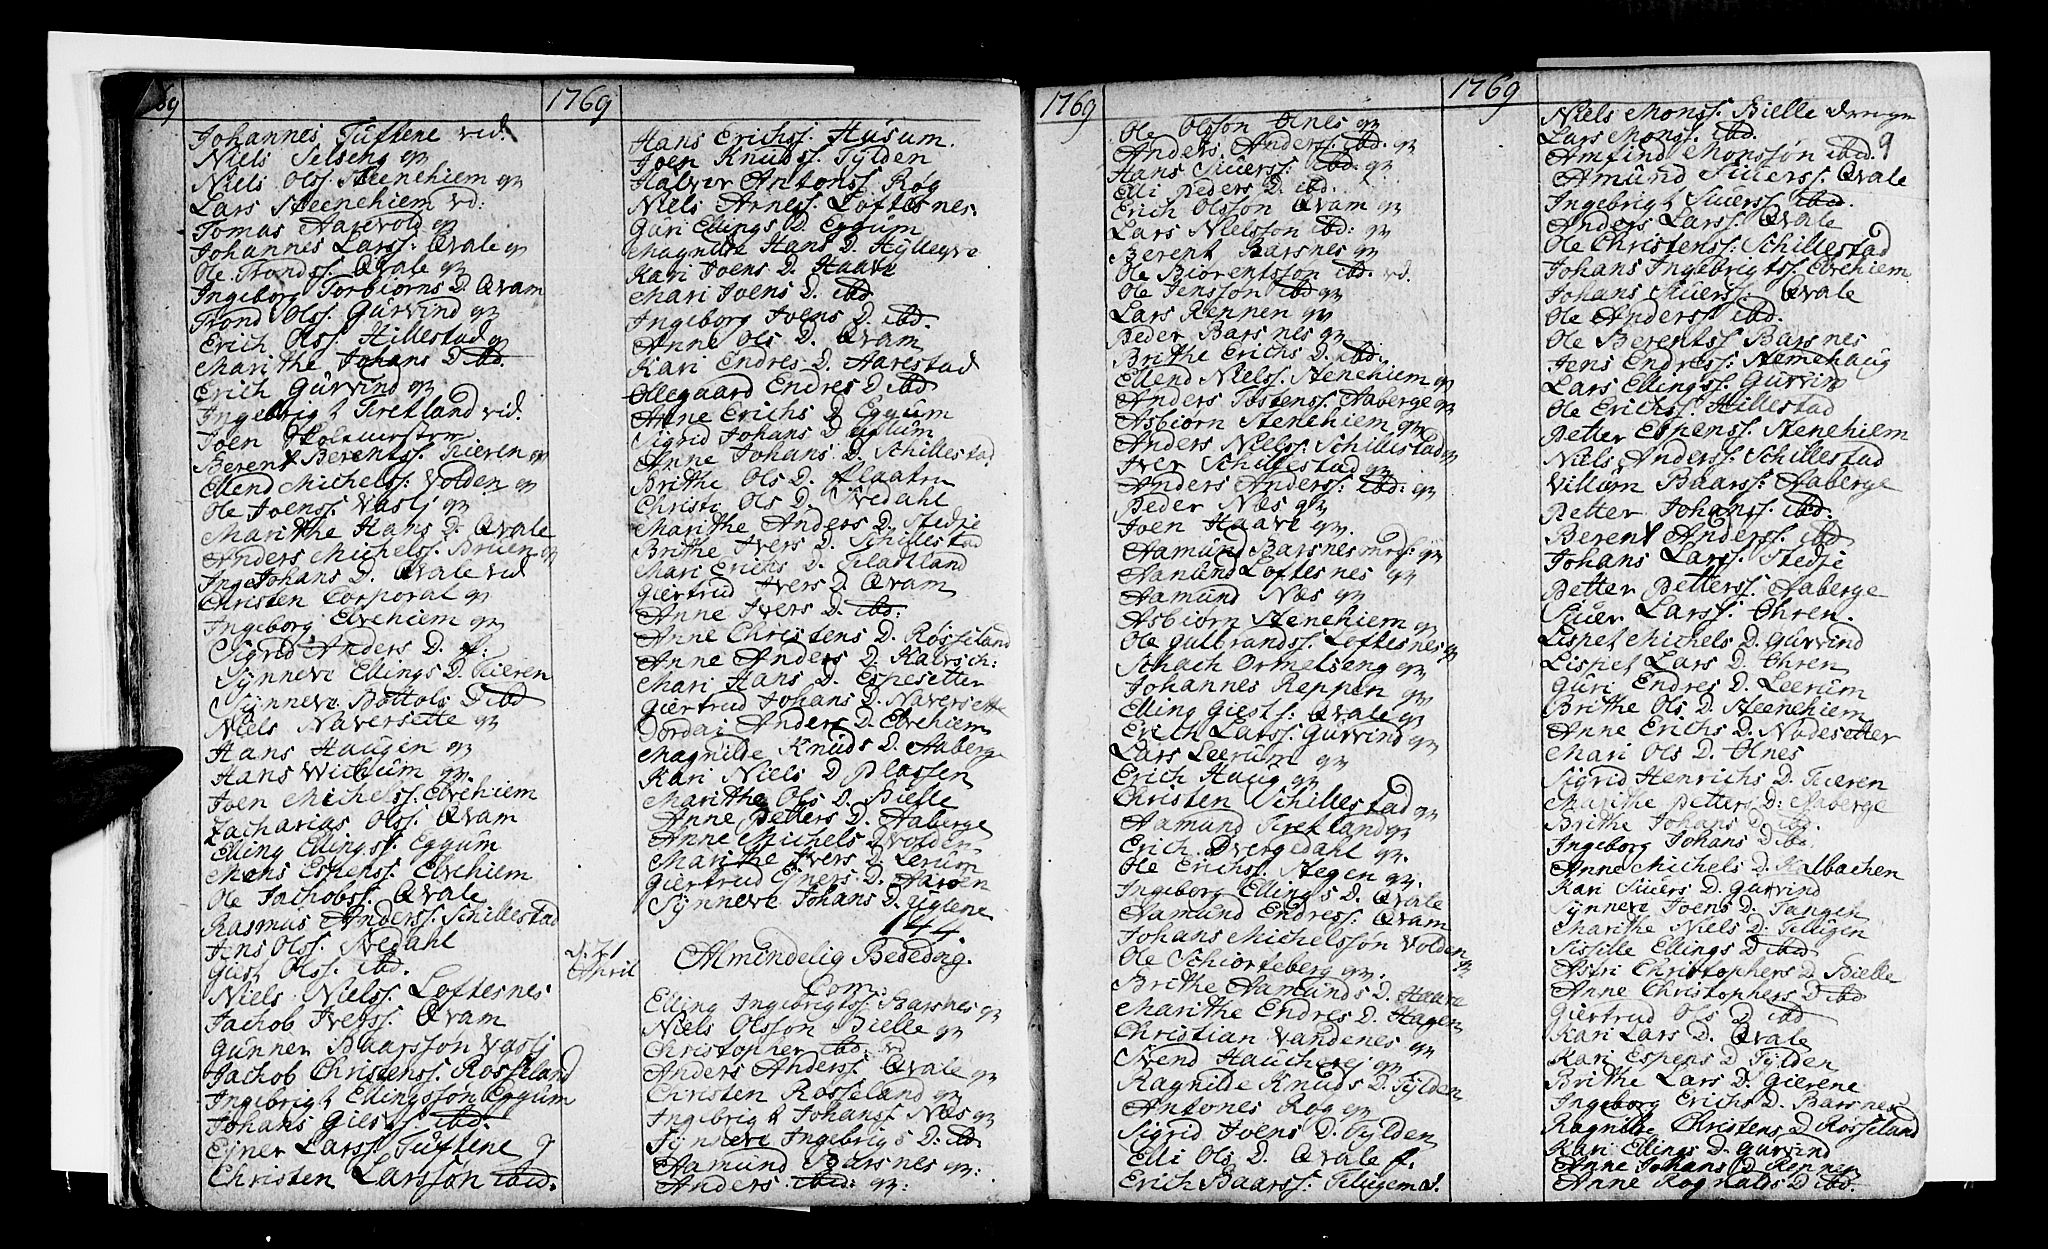 69
Johannes Tuftene vid.
Niels Selseng qv
Niels Ols. Steenehiem qv
Lars Steenehiem vd:
Tomas Aarevold qv
Johannes Larss: Qvale qv
Ole Trondss. Qvale qv
Ingeborg Torbiorns D. Qvam
Trond Olss. Gurvind qv
Erich Olss. Hillestad qv
Marithe Johans D. ibd.
Erich Gurvind qv
Ingebrigt Tretland vid.
Joen
Berent Berentss. Tieren qv
Ellend Michelss. Volden qv
Ole Joenss. Vasli qv
Marithe Hans D. Qvale
Anders Michelss. Bruen qv
Inge Johans D. Qvale vid
Christen Corporal qv
Ingeborg Elvehiem qv
Sigrid Anders D. f:
Synneve Ellings D. Tieren
Synneve Bottols D ibd
Niels Naversette qv
Hans Haugen qv
Hans Wiclum qv.
Joen Michelss. Elvehiem
Zacharias Olss. Qvam
Elling Ellings. Eggum
Mons Espenss. Elvehiem
Ole Jachobss. Qvale
Rasmus Anderss. Schillestad
Jens Olss. Nedahl
Giest Olss. ibd.
Niels Nielss. Loftesnes
Jachob Iverss. Qvam
Gunner Baarsson Vasli
Jachob Christenss. Rosseland
Ingebrigt Ellingssøn Eggum
Johans Giests. ibd.
Ejner Larss. Tuftene
Christen Larssøn ibid.
1769
Hans Erichss: Husum.
Joen Knudss. Tylden
Halvor Antonss. Røg
Niels Arness. Loftesnes
Gari Ellings D. Eggum
Magnilde Hans D. Hyllegre
Kari Joens D. Haave
Mari Joens D. ibd
Ingeborg Joens D. ibd.
Anne Ols D. Qvam
Kari Endres D. Harestad
Ollegaard Endres D ibd
Anne Erichs D Eggum
Sigrid Johans D
Anne Johans D. Schillestad.
Brithe Ols D. Flaaten
Christi Ols D. Nedahl
Marithe Anders D. Stedje
Brithe Ivers D. Schillestad
Mari Erichs D. Flatland
Giertrud Ivers D. Qvam
Anne Ivers D. ibd:
Anne Christens D. Røsseland
Anne Anders D. Kalvsch:
Mari Hans D. Espesetter
Giertrud Johans D. Naversette
Dordai Anders D. Elvehiem
Magnilde Knuds D. Aaberge
Kari Niels D Plassen
Marithe Ols D. Bielle
Anne Petters D. Aaberge
Anne Michels D. Volden
Marithe Ivers D. Lerum
Giertrud Ejners D. Aaroen
Synneve Johans D. Uglene
144.
D. 21 April
Almindelig Bededag.
Com:
Elling Ingebrigtss. Barsnes qv
Niels Olsson Bielle qv
Christopher ibd: vd
Anders Anderss: Qvale qv
Christen Rosseland qv
Ingebrigt Johanss. Næs qv
Synneve Ingebrigs D. ib.
Aamund Barsnes qv:
Anders ibid: qv:
1769
Ole Olsson Ølnes qv
Anders Anderss: ibd. qv
Hans Siuerss: ibd. qv
Elli Peders D. ibd:
Erich Olsson Qvam qv
Lars Nielsson ibd: qv
Berent Barsnes qv
Ole Biorentsson ibd. vd.
Ole Jensson ibd qv
Lars Reppen qv
Peder Barsnes qv
Brithe Erichs D. ibd.
Ellend Nielss. Stenehiem qv
Anders Tostenss. Aaberge qv
Asbiørn Stenehiem qv
Anders Nielss. Schillestad qv
Iver Schillestad qv
Anders Anderss: ibd: qv
Peder Næs qv
Joen Haave qv
Aamund Barsnes qv
Aamund Loftesnes qv
Aamund Næs qv
Asbiørn Stenehiem qv
Ole Gulbrandss. Loftesnes qv
Schach Ormelseng qv
Johannes Reppen qv
Elling Giests: Qvale qv
Erich Larss. Gurvind qv
Lars Leerum qv
Erich Haug qv
Christen Schillestad qv
Aamund Tretland qv
Erich Dvergedahl qv.
Ole Erichs. Stegen qv.
Ingeborg Ellings D. Qvale
Aamund Endress. Qvam
Johans Michelssøn Volden
Ole Schiorteberg qv:
Brithe Aamunds D. Haave
Marithe Endres D. Hagen
Christian Vandenes qv
Svend Hauchere qv
Ragnilde Knuds D. Tylden
Antones Røg qv
Sigrid Joens D. Tylden
Elli Ols D. Qvale f.
Erich Baarss: Flugem d.
1769
9
Niels Monss. Bielle dreng
Lars Mons. ibd.
Amfind Monssøn ibid.
Amund Siuerss. Qvale
Ingebrigt Siuerss. ibd.
Anders Larss. Qvale
Ole Christenss. Schillestad
Johans Ingebrigtss. Elvehiem
Johans Siuerss. Qvale
Ole Anderss. ibd.
Ole Berentss. Barsnes
Jens Endress. Stemehaug
Lars Ellingss. Gurvin
Ole Erichss. Hillestad
Petter Espenss. Stenehiem
Niels Anderss. Schillestad
Villum Baarss: Aaberge
Petter Johanss. ibd.
Berent Anderss. ibd
Johans Larss. Stedje
Petter Petterss. Aaberge
Siuer Larss. Ohren.
Lispet Michels D. Gurvind
Lispet Lars D. Ohren
Guri Endres D. Leerum
Brithe Ols D. Steenehiem
Anne Erichs D. Nodesetter
Mari Ols D. Ølnes
Sigrid Henrichs D. Tieren
Marithe Petters D: Aaberge
Brithe Johans D. ibd.
Ingeborg Johans D ibd
Anne Michels D. Kalbachen
Kari Siuers D. Gurvind
Synneve Joens D. Tangen
Marithe Niels D. Flugen
Sissille Ellings D ibid
Astri Christophers D. Bielle
Anne Christophers D ibd
Giertrud Ols D ibd
Kari Lars D. Qvale
Kari Espens D Tylden
Brithe Lars D. Gierene
Ingeborg Erichs D. Barsnes
Ragnilde Christens D. Rosseland
Kari Ellings D. Gurvind
Anne Johans D. Reppen
Anne Rognalds D ibd.